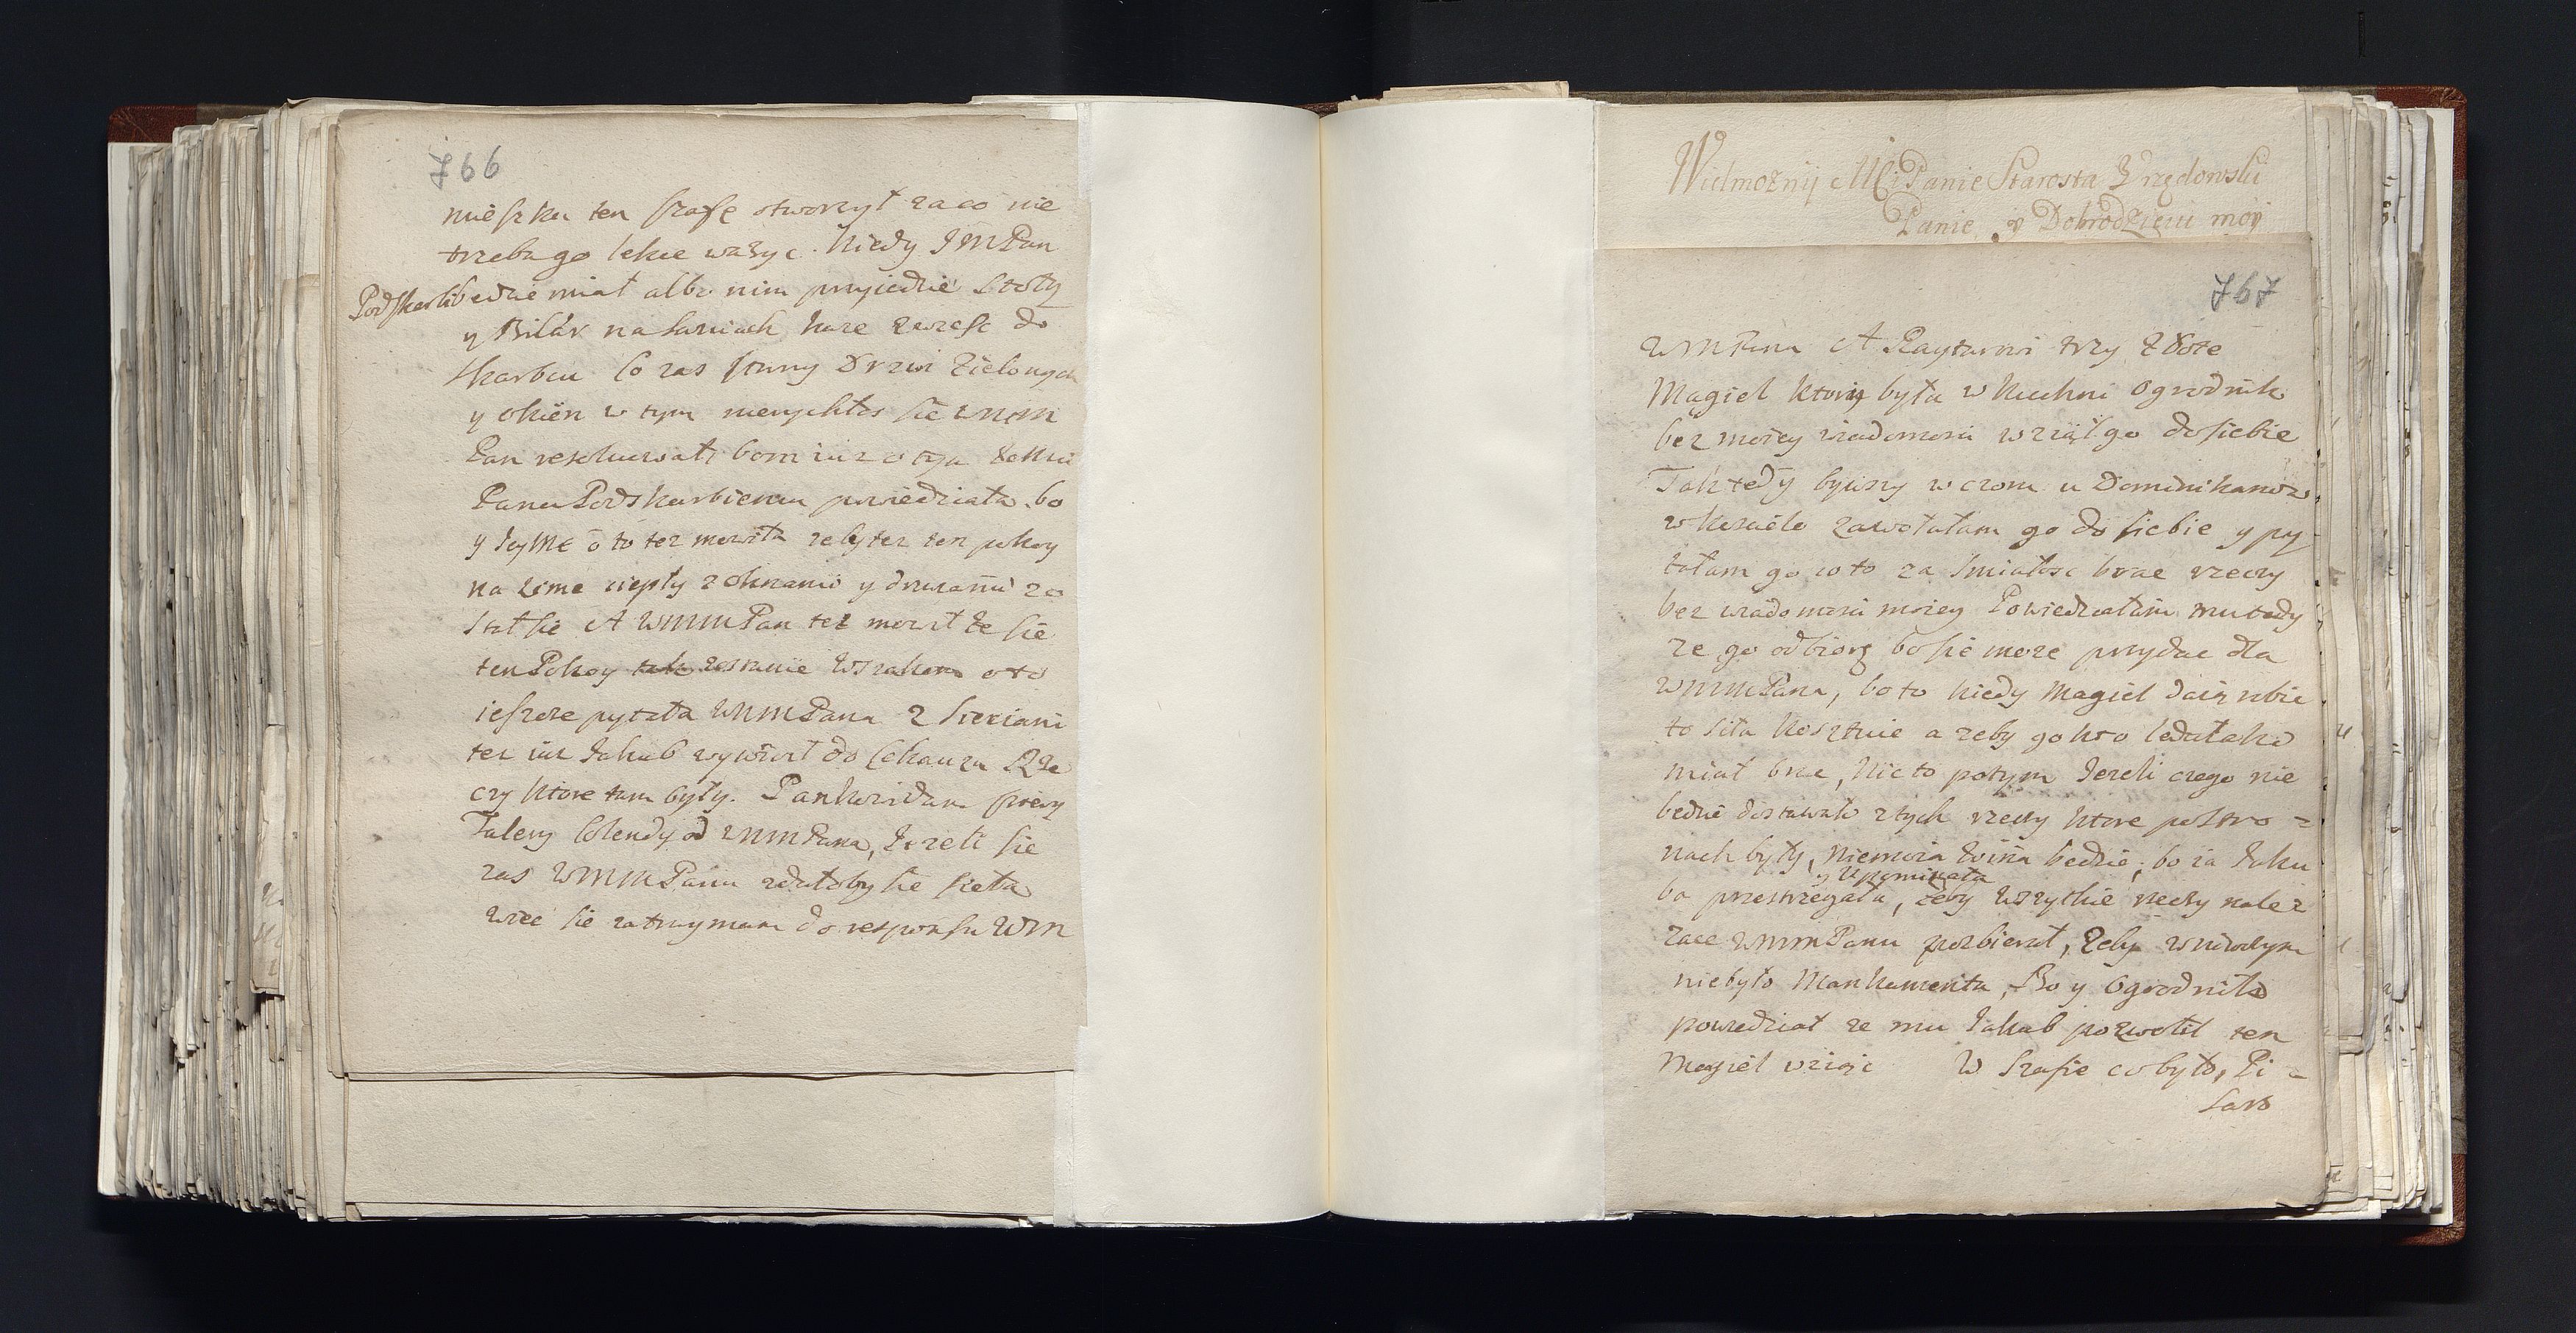 766
mieszku ten szafę otworzył zaco nie
trzeba go lekce ważyc. Kiedy JMPan
Podskarbi bedzie miał albo nim przyiedzie Stoły
y Bilár na saniach każe zwiesc do
skarbcu Co zas strony Drzwi Zielonych
y okien w tym
Pan resolwowati bom iuz o tym
Panu Podskarbiemu powiedziała. bo
y Jeyme o to tez mowiła zeby tez ten pokoy
na zime ciepły z oknami y drzwiami zo
stał sie A WMMPan też mowił że sie
ten Pokoy tak zostanie o to
ieszcze pytała WMMPana z
tez iuz Jakub wywiozł do Rze
czy ktore tam były. Pankowi dam
Talery Colendy od WMMPana, Jezeli sie
zas WMMPanu zdałoby sie
wiec sie zatrzymam do responsu WM
Wielmożnÿ MCi Panie Starosta Urzędowski
Panie y Dobrodzieiu móy
767
WMPana A Raytarowi trzy Złote
Magiel ktory była w kuchni Ogrodnik
bez moiey wiadomosci wziął go do siebie
Tak tedy bywszy wczora u Dominikanow
w kosciele zawołałam go do siebie y py
tałam go co to za smiałosc brac rzeczy
bez wiadomosci moiey Powiedziałam mu tedy
ze go odbiorę bo sie moze przydac dla
WMMPana, bo to kiedy Magiel
to siła kosztuie a zeby go kto ledaiako
miał brac, nic to potym Jezeli czego nie
bedzie dostawało z tych rzeczy ktore po stro =
nach były, niemoia wina bedzie, bo ia Jaku
y Upominała
ba przestrzegała, zeby wszytkie rzeczy nalez
zace WMMPanu pozbierał, Zeby w niwczym
niebyło Mankamentu, Bo y Ogrodnik
powiedział ze mu Jakub pozwolił ten
Magiel wziąc W Szafie co było, Pi =
sarz